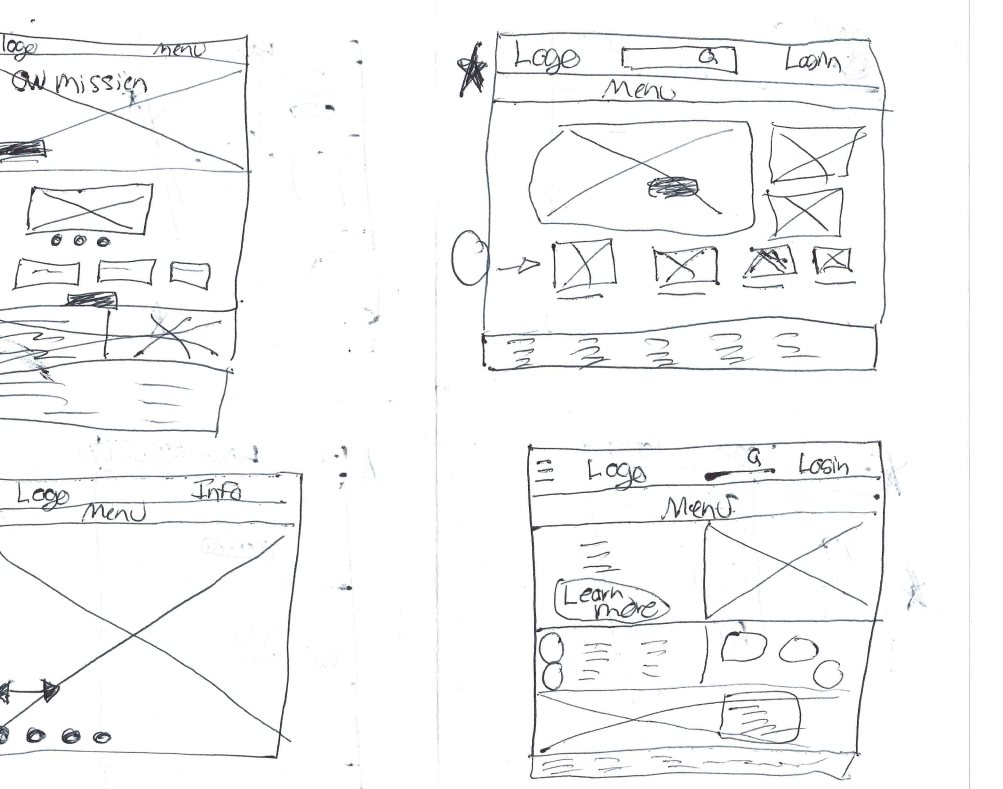 Logo
Menu
Our mission
Logo
Q
Login
Menu
Logo
Info
Menu
Logo
Q
Login
Menu
Learn
more